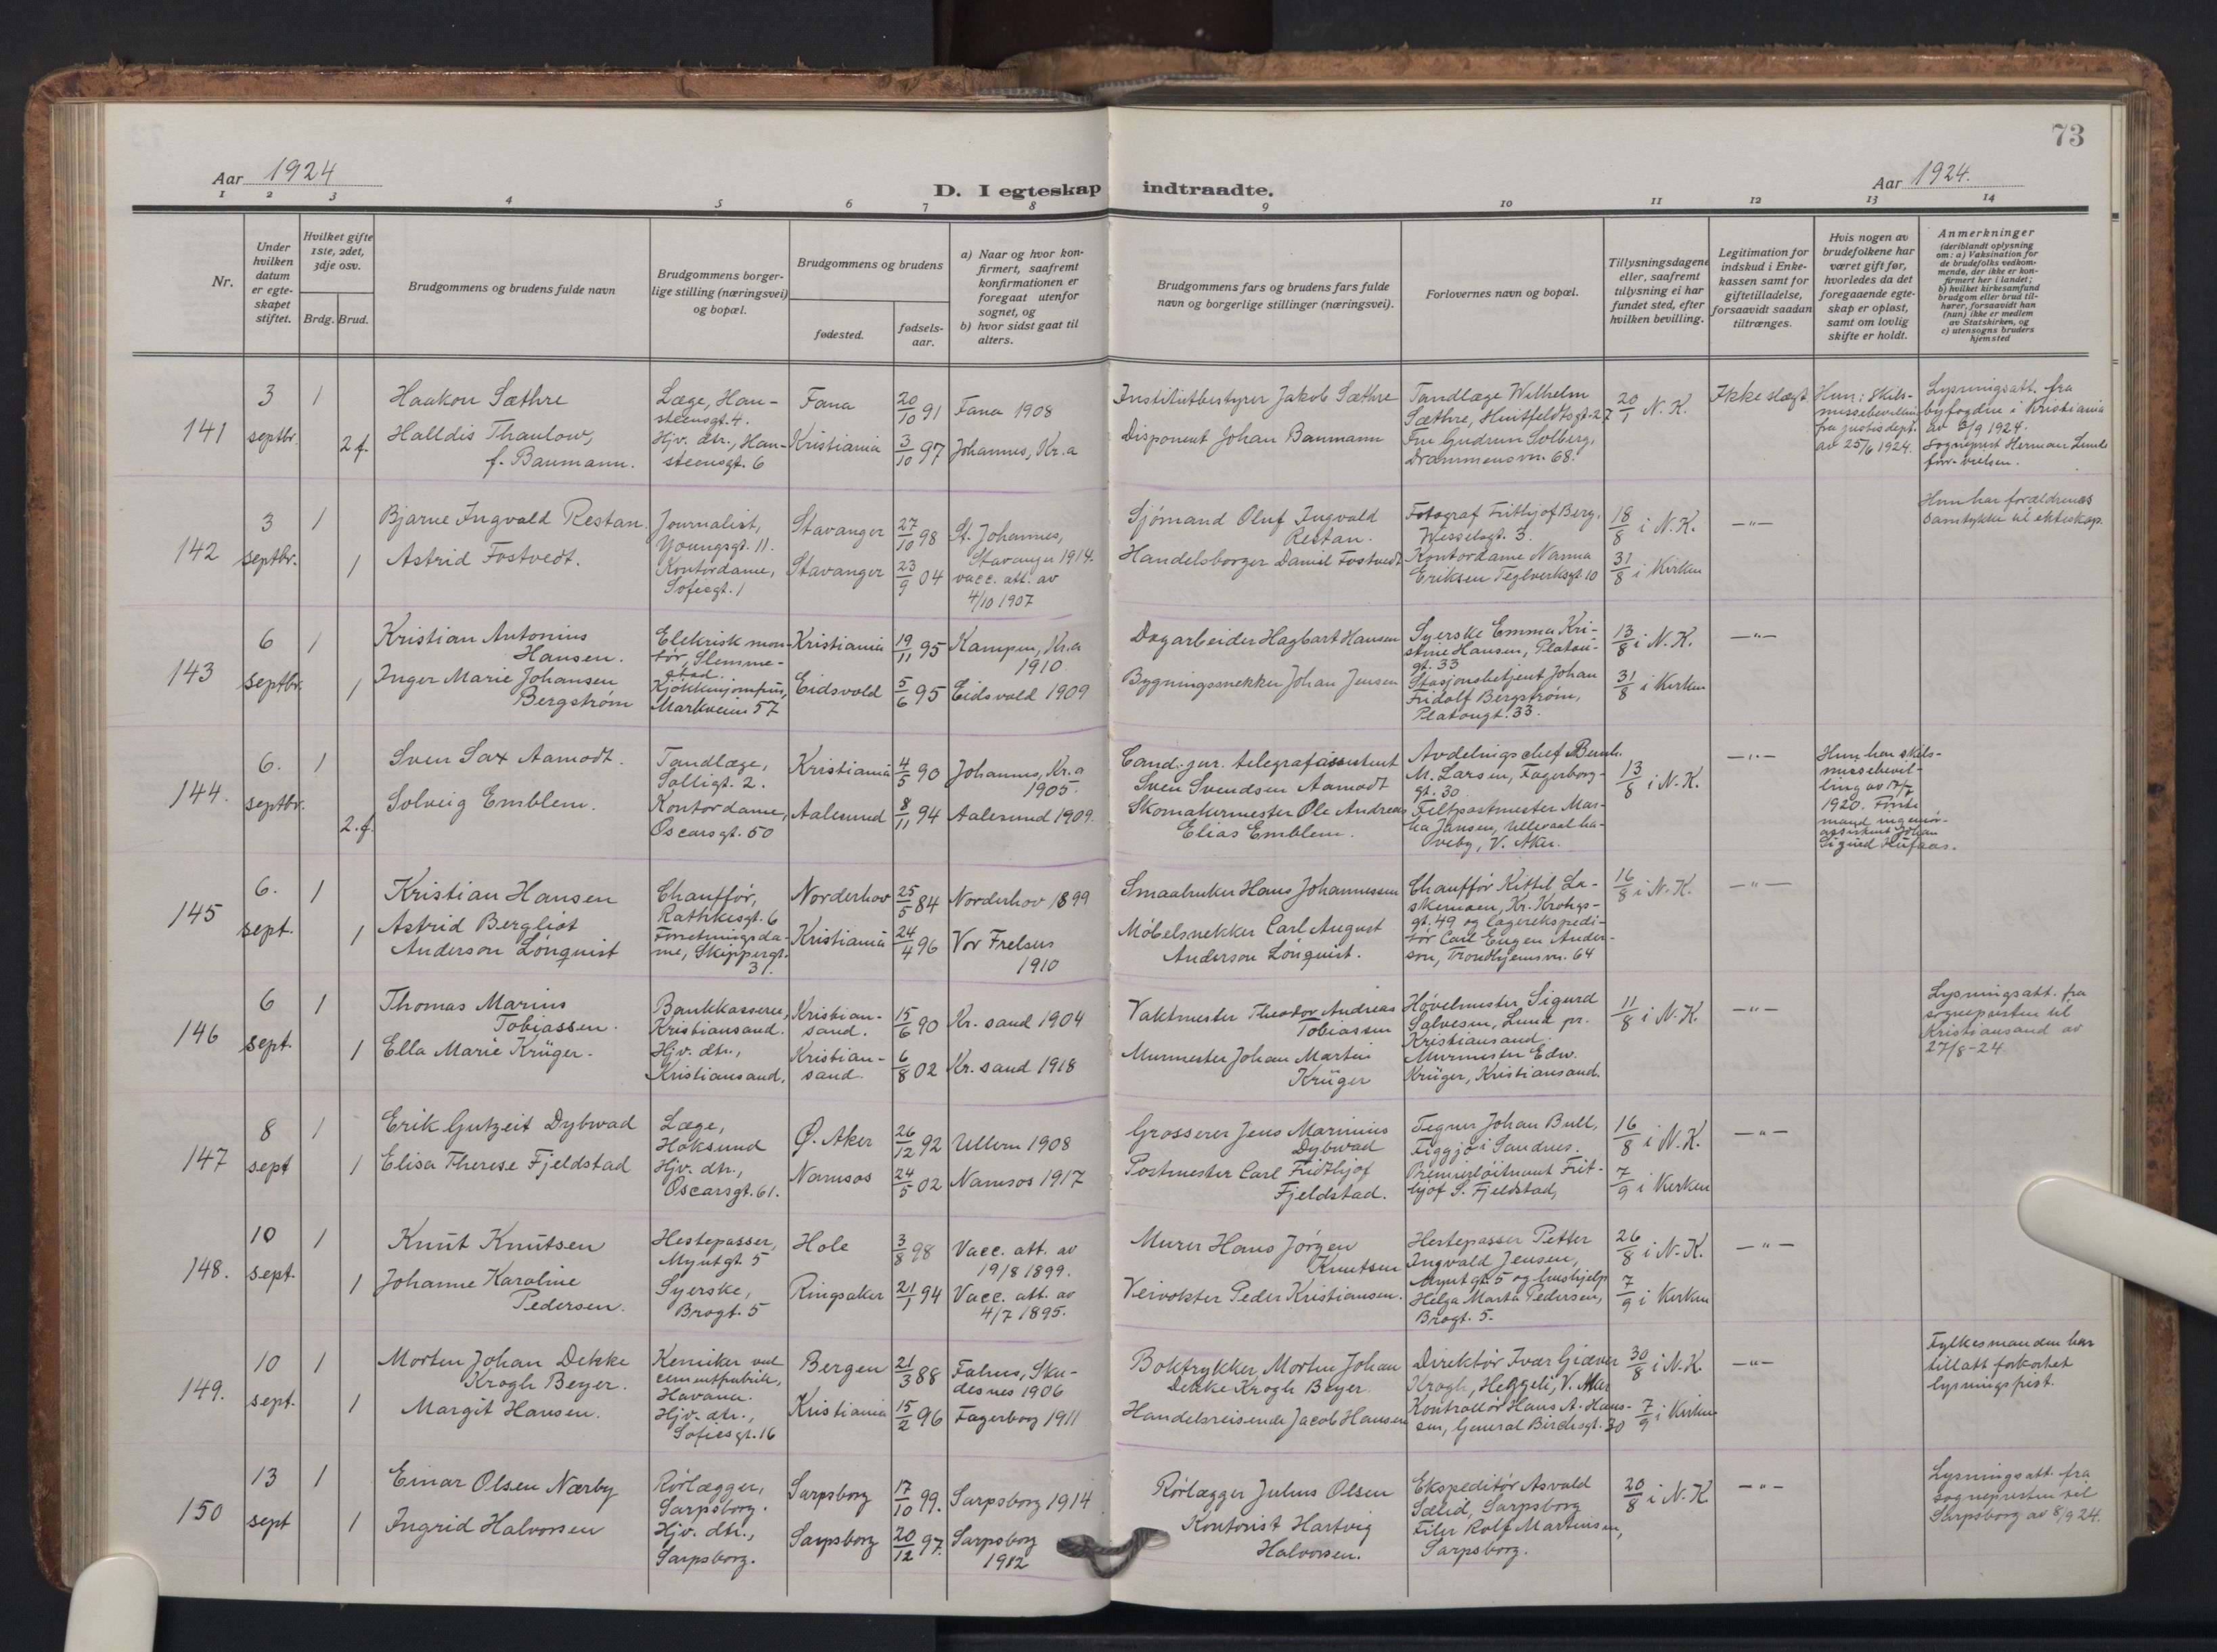 73
Aar 1924
Aar 1924.
D. I egteskap indtraadte.
1 2 3 4 5 6 7 8 9 10 11 12 13 14
Nr.
Under hvilken datum er egte-skapet stiftet.
Hvilket gifte 1ste, 2det, 3dje osv.
Brdg. Brud.
Brudgommens og brudens fulde navn
Brudgommens borger-lige stilling (næringsvei) og bopæl.
Brudgommens og brudens
fødested.
fødsels-aar.
a) Naar og hvor kon-firmert, saafremt konfirmationen er foregaat utenfor sognet, og
b) hvor sidst gaat til alters.
Brudgommens fars og brudens fars fulde navn og borgerlige stillinger (næringsvei).
Forlovernes navn og bopæl.
Tillysningsdagene eller, saafremt tillysning ei har fundet sted, efter hvilken bevilling.
Legitimation for indskud i Enke-kassen samt for giftetilladelse, forsaavidt saadan tiltrænges.
Hvis nogen av brudefolkene har været gift før, hvorledes da det foregaaende egte-skap er opløst, samt om lovlig skifte er holdt.
Anmerkninger
(deriblandt oplysning om: a) Vaksination for de brudefolks vedkom-mende, der ikke er kon-firmert her i landet;
b) hvilket kirkesamfund brudgom eller brud til-hører, forsaavidt han (hun) ikke er medlem av Statskirken, og
c) utensogns bruders hjemsted
141
3 septbr.
1
2 f.
Haakon Sæthre
Halldis Thaulow,
f. Baumann.
Læge, Han-
steensgt. 4.
Hjv. dtr., Han-
steensgt. 6
Fana 20/10 91 Fana 1908
Kristiania 3/10 97 Johannes, Kr.a
Institutbestyrer Jakob Sæthre
Disponent Johan Baumann
Tandlæge Wilhelm
Sæthre, Huitfeldtsgt. 27
Fru Gudrun Solberg,
Drammensvn. 68.
20/1 N.K.
Ikke slegt
Hun: Skils-
missebevilling
fra justisdept.
av 25/6 1924.
Lysningsatt. fra
byfogden i Kristiania
av 3/9 1924.
Sogneprest Herman Lunde
forr. vielsen.
142
3 septbr.
1
1
Bjarne Ingvald Restan.
Astrid Fostvedt.
Journalist,
Youngsgt. 11.
Kontordame,
Sofiesgt. 1
Stavanger 27/10 98 St. Johannes,
Stavanger 1914.
Stavanger 23/9 04 vacc. att. av
4/10 1907
Sjómand Oluf Ingvald
Restan.
Handelsborger Daniel Fostvedt
Fotograf Frithjof Berg,
Wesselsgt. 3.
Kontordame Nanna
Eriksen Teglverksgt. 10
18/8 i N.K.
31/8 i Kirken
—"—
Hun har forældrenes
samtykke til ekteskap.
143
6 septbr.
1
1
Kristian Antonius
Hansen.
Inger Marie Johansen
Bergstrøm
Elektrisk mon-
tør, Slemme-
stad.
Kjøkkenjomfru,
Markveien 57
Kristiania 19/11 95 Kampen, Kr.a
1910
Eidsvold 5/6 95 Eidsvold 1909
Dagarbeider Hagbart Hansen
Bygningssnekker Johan Jensen
Syerske Emma Kri-
stine Hansen, Platou-
gt. 33
Stasjonsbetjent Johan
Fridolf Bergstrøm,
Platougt. 33.
13/8 i N.K.
31/8 i Kirken
—"—
144.
6. septbr.
1
2. f.
Sven Sax Aamodt.
Solveig Emblem.
Tandlæge,
Solligt. 2.
Kontordame,
Oscarsgt. 50
Kristiania 4/5 90 Johannes, Kr.a
1905.
Aalesund 8/11 94 Aalesund 1909.
Cand. jur. telegrafassistent
Sven Svendsen Aamodt
Skomakermester Ole Andreas
Elias Emblem.
Avdelingschef Bernh.
M. Larsen, Fagerborg-
gt. 30
Feltpostmester Mar-
Jansen, Ullevaal ha-
veby, V. Aker.
13/8 i N.K.
—"—
Hun har skils-
missebevil-
ling av 17/7
1920. Første
mand ingeniør-
assistent Johan
Sigurd Hufaas.
145
6. sept.
1
1
Kristian Hansen
Astrid Bergliot
Anderson Lönquist
Chauffør,
Rathkesgt. 6
Forretningsda-
me, Skippergt.
31.
Norderhov 25/5 84 Norderhov 1899
Kristiania 24/4 96 Vor Frelsers
1910
Smaabruker Hans Johannessen
Møbelsnekker Carl August
Anderson Lönquist.
Chauffør Kittil La-
skemoen, Kr. Krohgs-
gt. 49 og lagerekspedi-
tør Carl Eugen Ander-
son, Trondhjemsvn. 64
16/8 i N.K.
—"—
146
6 sept.
1
1
Thomas Marius
Tobiassen.
Ella Marie Krüger.
Bankkasserer,
Kristiansand.
Hjv. dtr.,
Kristiansand,
Kristian-
sand. 15/6 90 Kr. sand 1904
Kristian-
sand. 6/8 02 Kr. sand 1918
Vaktmester Theodor Andreas
Tobiassen
Murmester Johan Martin
Krüger
Høvelmester Sigurd
Salvesen, Lund pr.
Kristiansand.
Murmester Edw.
Krüger, Kristiansand.
11/8 i N.K.
—"—
Lysningsatt. fra
sognepresten til
Kristiansand av
27/8-24.
147
8 sept
1
1
Erik Gutzeit Dybwad
Elisa Therese Fjeldstad
Læge,
Hoksund
Hjv. dtr.,
Oscarsgt. 61.
Ø. Aker 26/12 92 Ullern 1908
Namsos 24/5 02 Namsos 1917
Grosserer Jens Marinius
Dybwad
Postmester Carl Fridthjof
Fjeldstad.
Tegner Johan Bull,
Figgjo i Sandnes.
Premierløitnant Frit-
hjof S. Fjeldstad,
16/8 i N.K.
7/9 i Kirken
—"—
148.
10 sept.
1
1
Knut Knutsen
Johanne Karoline
Pedersen.
Hestepasser,
Myntgt. 5
Syerske,
Brogt. 5
Hole 3/8 98 Vacc. att. av
19/8 1899.
Ringsaker 21/1 94 Vacc. att. av
4/7 1895.
Murer Hans Jørgen
Knutsen
Veivokter Peder Kristiansen.
Hestepasser Petter
Ingvald Jensen,
Myntgt. 5 og hushjelp
Helga Marta Pedersen,
Brogt. 5.
26/8 i N.K.
7/9 i Kirken
—"—
149.
10 sept.
1
1
Morten Johan Dekke
Krogh Beyer.
Margit Hansen.
Kemiker ved
cementfabrik,
Havana.
Hjv. dtr.,
Sofiesgt. 16
Bergen 21/3 88 Falnes, Sku-
desnes 1906
Kristiania 15/2 96 Fagerborg 1911
Boktrykker Morten Johan
Dekke Krogh Beyer.
Handelsreisende Jacob Hansen
Direktør Ivar Giæver
Krogh, Heggeli, V. Aker
Kontrollør Hans A. Han-
sen, General Birchsgt. 30
30/8 i N.K.
7/9 i Kirken
—"—
Fylkesmanden har
tillatt forkortet
lysningsfrist.
150
13 sept
1
1
Einar Olsen Nærby
Ingrid Halvorsen
Rørlægger,
Sarpsborg.
Hjv. dtr.,
Sarpsborg.
Sarpsborg 17/10 99. Sarpsborg 1914
Sarpsborg 20/12 97. Sarpsborg
1912
Rørlægger Julius Olsen
Kontorist Hartvig
Halvorsen.
Ekspeditør Asvald
Sælid, Sarpsborg
Filer Rolf Martinsen,
Sarpsborg.
20/8 i N.K
—"—
Lysningsatt. fra
sognepresten til
Sarpsborg av 8/9 24.